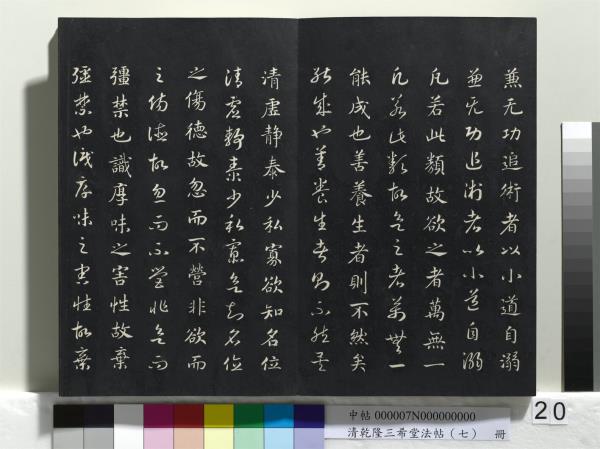 兼无功追術者以小道自溺
兼无功追術者以小道自溺
凡若此類故欲之者萬無一
凡若此類故欲之者萬無一
能成也善養生者則不然矣
能成也善養生者則不然矣
清虛静泰少私寡欲知名位
清虛静泰少私寡欲知名位
之傷德故忽而不營非欲而
之傷德故忽而不營非欲而
彊禁也識厚味之害性故棄
彊禁也識厚味之害性故棄
中帖 000007N000000000
清乾隆三希堂法帖（七） 冊
20